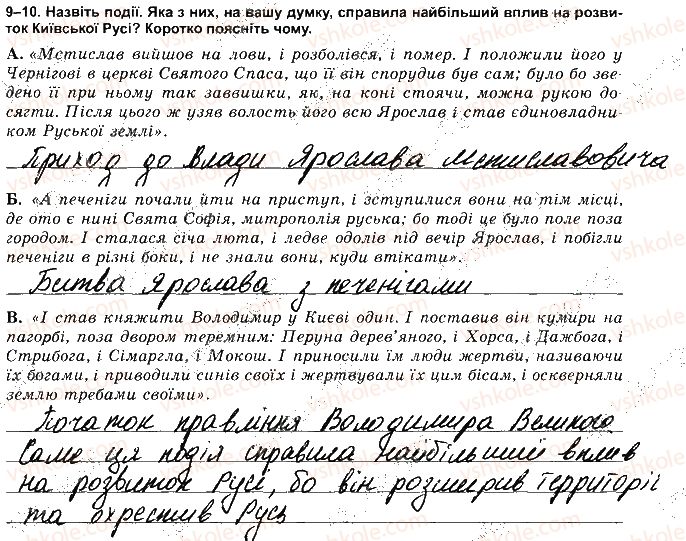 9–10. Назвіть події. Яка з них, на вашу думку, справила найбільший вплив на розви-
ток Київської Русі? Коротко поясніть чому.
А. «Мстислав вийшов на лови, і розболівся, і помер. І положили його у
Чернігові в церкві Святого Спаса, що її він спорудив був сам; було бо зве-
дено її при ньому так заввишки, як, на коні стоячи, можна рукою до-
сягти. Після цього ж узяв волость його всю Ярослав і став єдиновладни-
ком Руської землі».
Приход до Влади Ярослава Мстиславовича
Б. «А печеніги почали йти на приступ, і зступилися вони на тім місці,
де ото є нині Свята Софія, митрополія руська; бо тоді це було поле поза
городом. І сталася січа люта, і ледве одолів під вечір Ярослав, і побігли
печеніги в різні боки, і не знали вони, куди втікати».
Битва Ярослава з печенігами
В. «І став княжити Володимир у Києві один. І поставив він кумири на
пагорбі, поза двором теремним: Перуна дерев’яного, і Хорса, і Дажбога, і
Стрибога, і Сімаргла, і Мокош. І приносили їм люди жертви, називаючи
їх богами, і приводили синів своїх і жертвували їх цим бісам, і оскверняли
землю требами своїми».
Початок правління Володимира Великого
Саме ця подія справила найбільший вплив
на розвиток Русі, бо він розширив территорії
та охрестив Русь